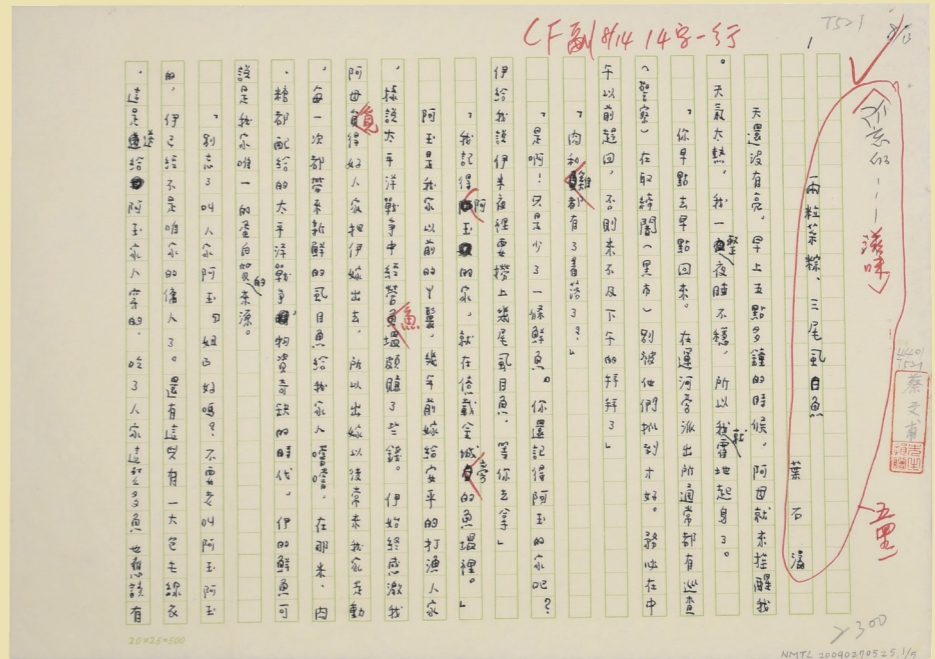 CF副 8/14 14字一行
T521
8/13
1
不忘的———滋味
兩粒菜粽,三尾虱目魚
葉石濤
五、四
天還沒有亮,早上五點多鐘的時候,阿母就來搖醒我
。天氣大熱,我一整夜睡不穩,所以就霍地起身了。
「你早點去早點回來。在運河旁派出所通常都有巡查
(警察)在取締闇(黑市)別被他們抓到才好。務必在中
午以前趕回,否則來不及下午的拜拜了」
「肉和雞都有了着落了?」
「是啊!只是少了一條鮮魚。你還記得阿玉的家吧?
伊給我說伊半夜裡要撈上幾尾虱目魚,等你去拿」
「我記得阿玉的家,就在億載金城旁的魚塭裡。」
阿玉是我家以前的丫鬟,幾年前嫁給安平的打漁人家
。據說太平洋戰爭中經營魚塭頗賺了些錢。伊始終感激我
阿母覓得好人家把伊嫁出去,所以出嫁以後常來我家走動
,每一次都帶來新鮮的虱目魚給我家人嚐嚐,在那米、肉
、糖都配給的太平洋戰爭物資奇缺的時代,伊的鮮魚可
說是我家唯一的蛋白質的來源。
「別老是叫人家阿玉、阿玉
的,伊已經不是咱家的傭人了。還有這兒有一大包毛線衣
,這是送給阿玉家人穿的。吃了人家這麼多魚也應該有
蔡文甫
T521
>300
20×25=500
NMTL 20090270525, 1/5